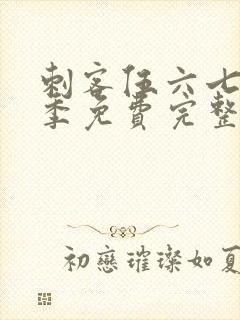 刺客伍六七
季免费完整
初戀璀璨如夏